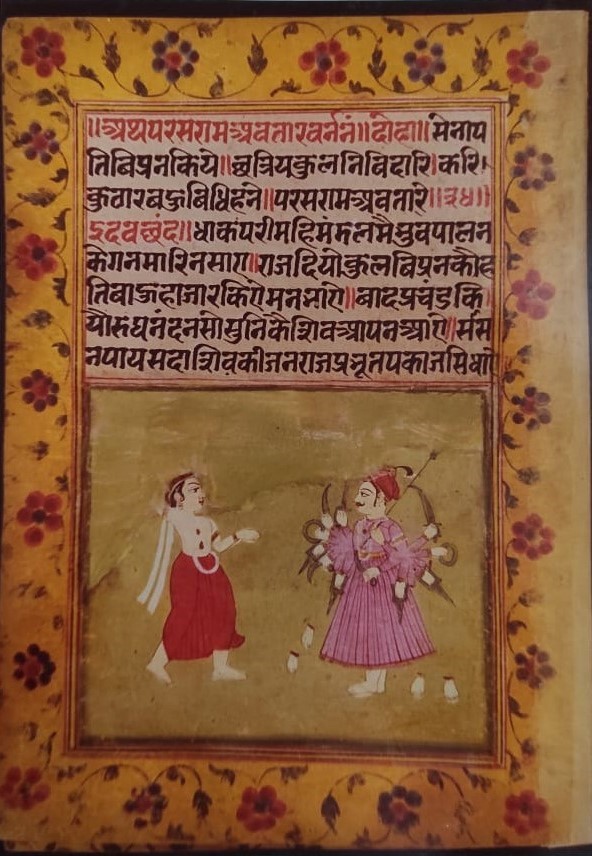 ॥अथपरसरामअवतारवर्ननं॥दोहा॥सेनाप
तिबिप्रनकिये॥छत्रियकुलनिविदारि।करि।
कुठारबज्रबिधिहने॥परसरामअवतारे॥३४॥
इदवछंद॥धाकपरीमहिमंडलमैभुवपालन
केगनमारिनसाए॥राजदियोकुलबिप्रनकौह
तिबाऊहाजारकिएमनभाए॥बादप्रचंडकि।
योरुघनंदनसोसुनिकैशिवआपनआए॥संस
नपायसदाशिवकीजनराजप्रभूतपकाजसिधाए